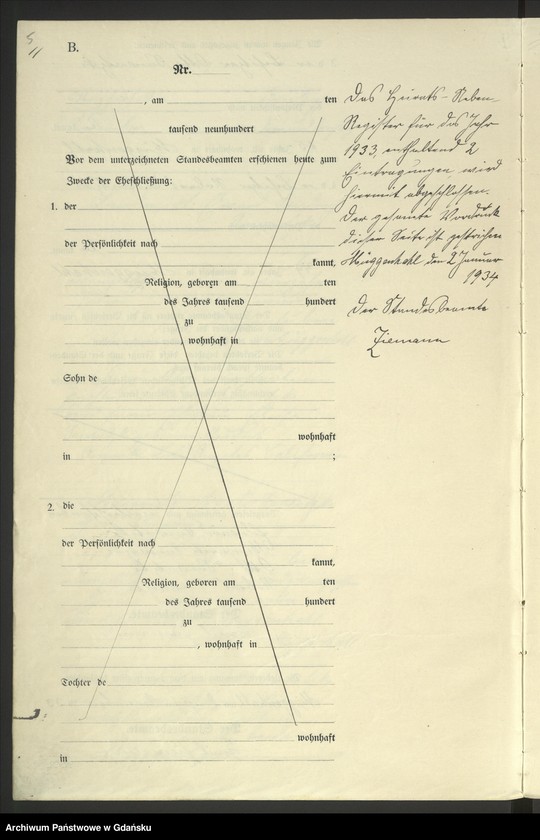 5
11
B.
Nr.
, am ten
tausend neunhundert
Vor dem unterzeichneten Standesbeamten erschienen heute zum
Zwecke der Eheschließung:
1. der
der Persönlichkeit nach
kannt,
Religion, geboren am ten
des Jahres tausend hundert
zu
, wohnhaft in
Sohn de
wohnhaft
in ;
2. die
der Persönlichkeit nach
kannt,
Religion, geboren am ten
des Jahres tausend hundert
zu
, wohnhaft in
Tochter de
wohnhaft
in
Das Heirats-Neben-
Register für das Jahr
1933, enthaltend 2
Eintragungen, wird
hiermit abgeschlossen.
Der gesamte Vordruck
dieser Seite ist gestrichen
Müggenhahl den 2 Januar
1934
Der Standesbeamte
Ziemann
Archiwum Państwowe w Gdańsku